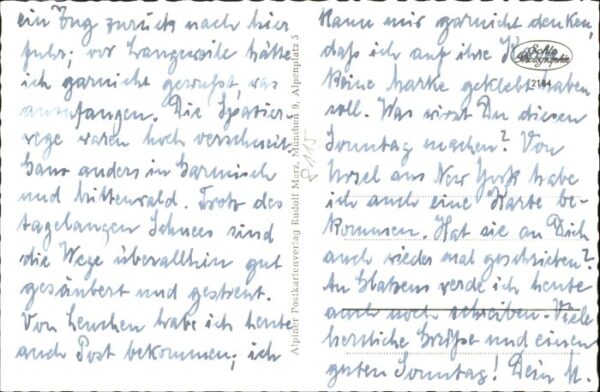 ein Zug zurück nach hier
fuhr; vor Langeweile hätte
ich garnicht gewusst, was
anzufangen. Die Spazier-
wege waren hoch verschneit.
Ganz anders in Garmisch
und Mittenwald. Trotz des
tagelangen Schnees sind
die Wege überallhin gut
gesäubert und gestreut.
Von Lenchen habe ich heute
auch Post bekommen; ich
Alpiner Postkartenverlag Rudolf Merz, München 9, Alpenplatz 5
kann mir garnicht denken,
daß ich auf ihre
keine Marke geklebt haben
soll. Was wirst Du diesen
Sonntag machen? Von
Ursel aus New York habe
ich auch eine Karte be-
kommen. Hat sie an Dich
auch wieder mal geschrieben?
An werde ich heute
auch noch schreiben. Viele
herzliche Grüße und einen
guten Sonntag! Dein M.
Echte
Photographie